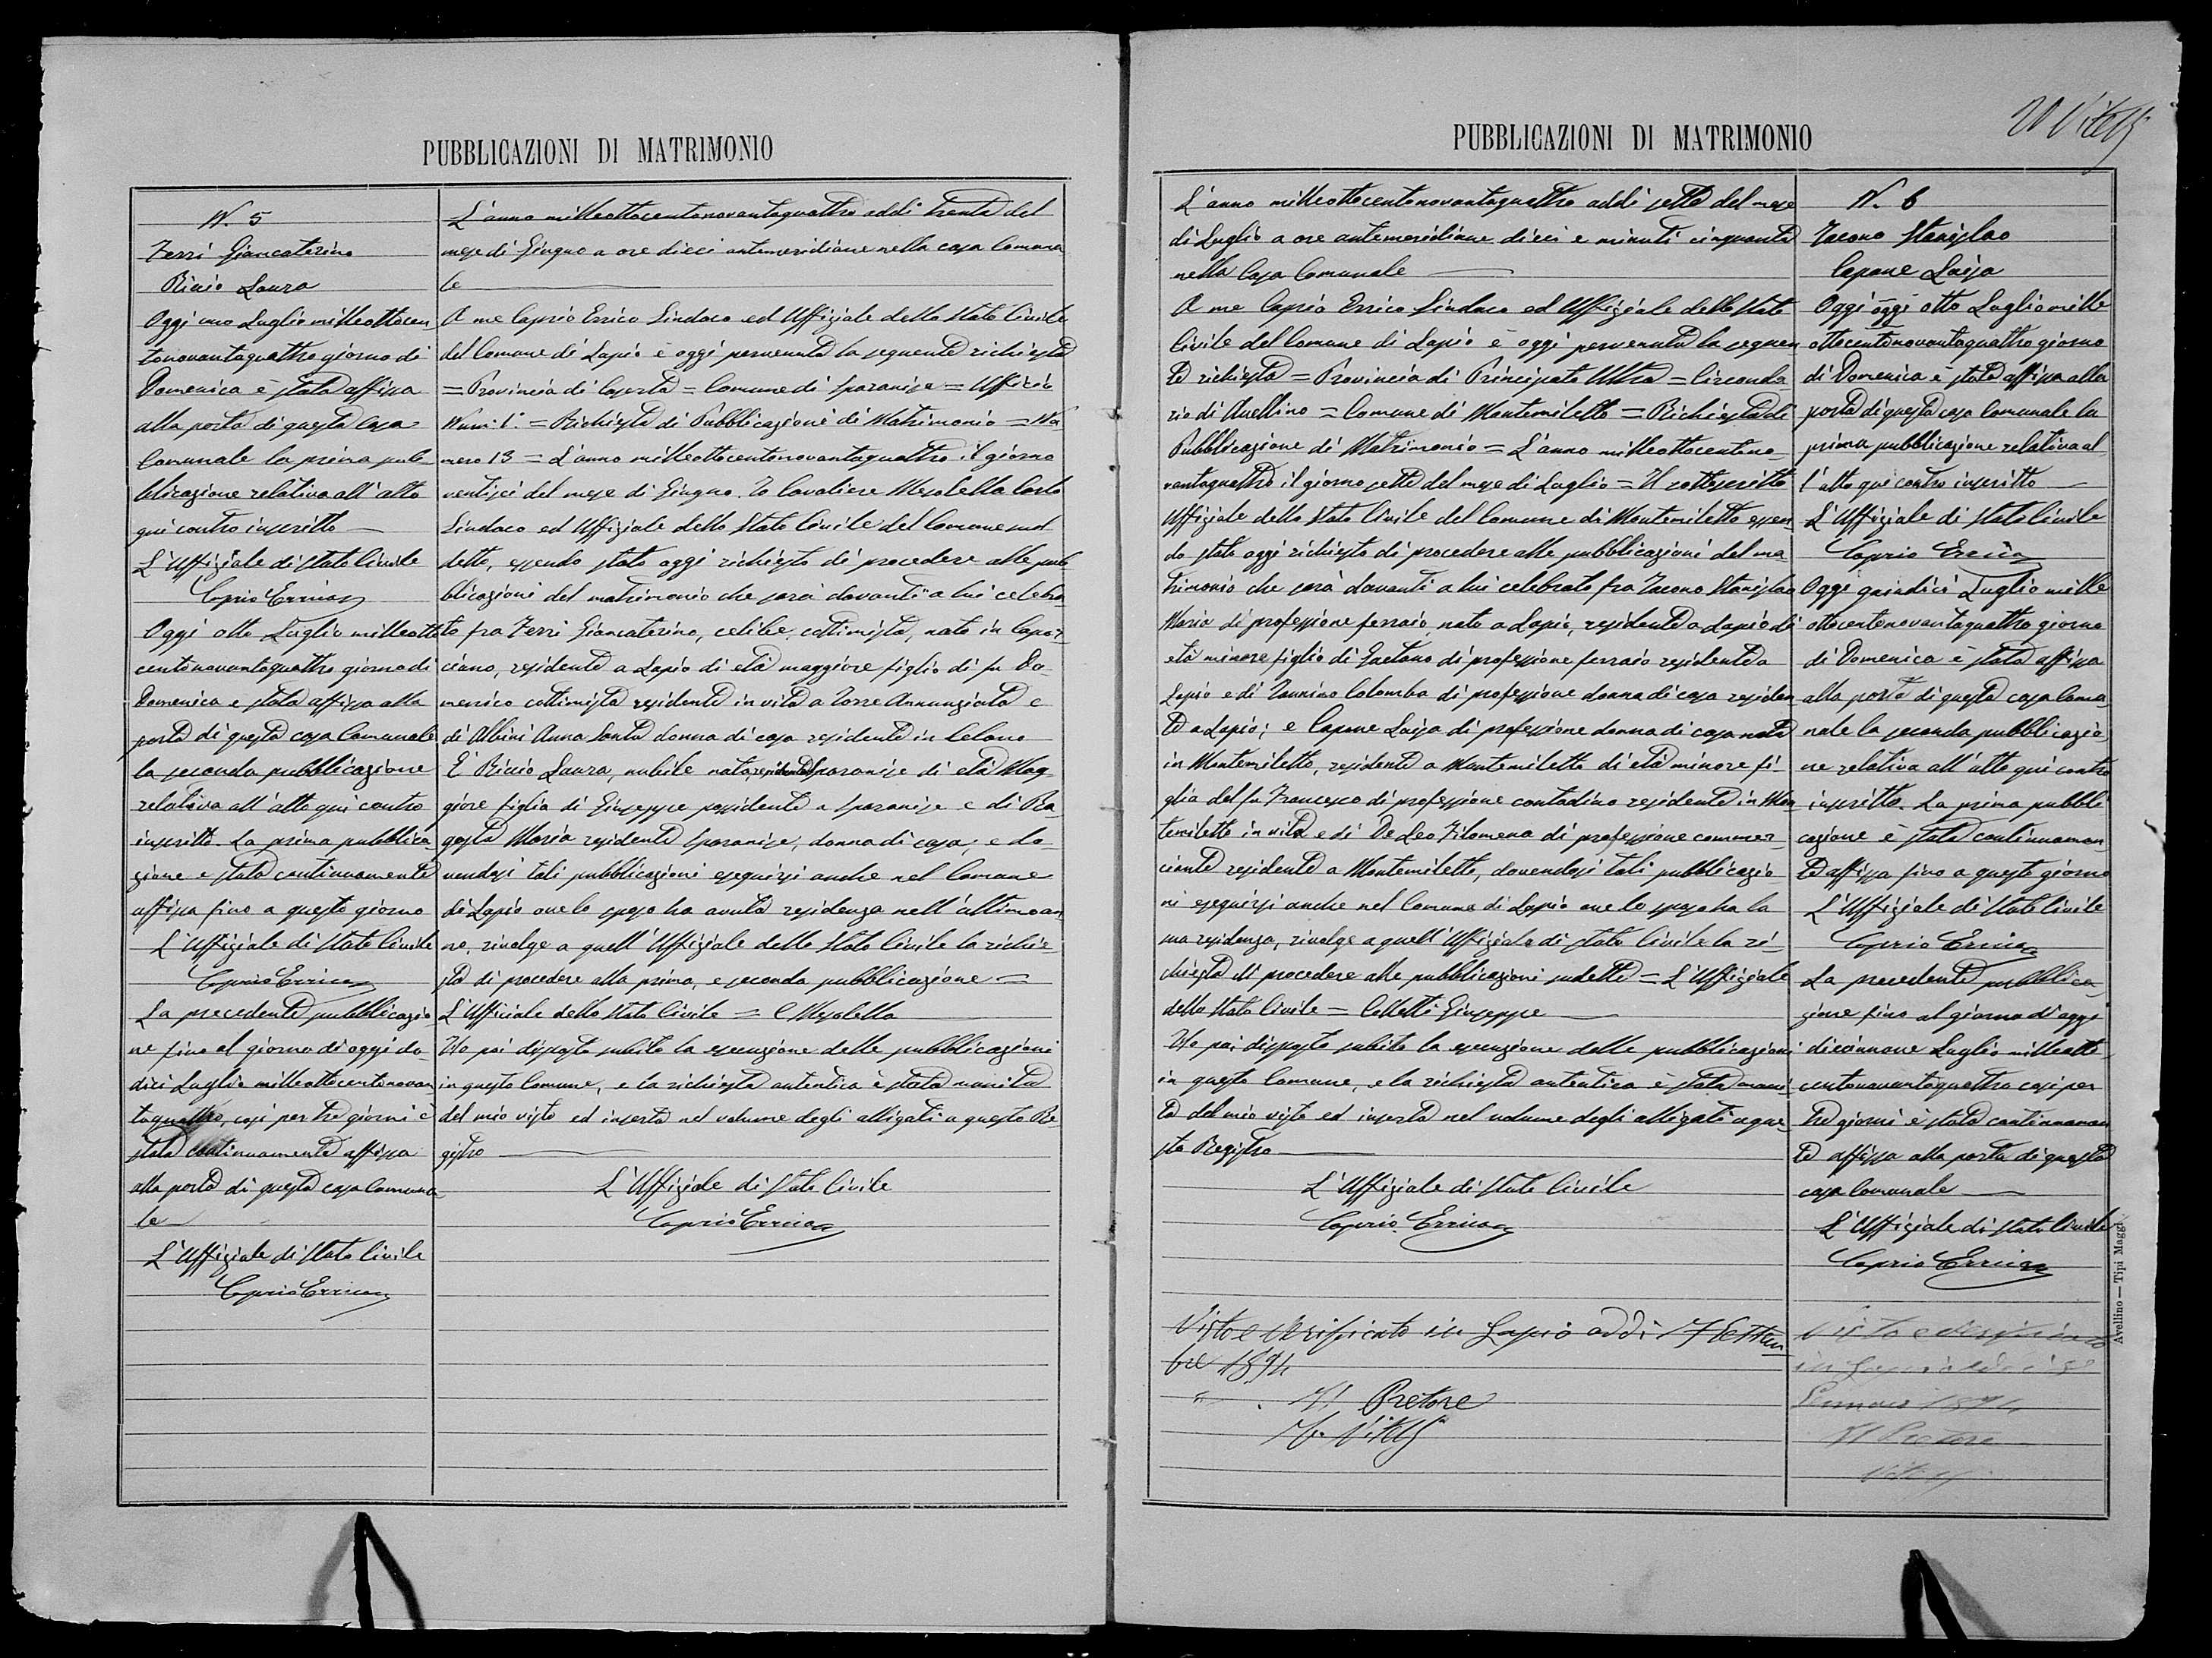 PUBBLICAZIONI DI MATRIMONIO
N. 5
Ferri Giancaterino
Riccio Laura
Oggi uno Luglio milleottocen
tonovantaquattro giorno di
Domenica è stata affissa
alla porta di questa Casa
Comunale la prima pub
blicazione relativa all'atto
qui contro inscritto
L'Uffiziale di Stato Civile
Caprio Errico
Oggi otto Luglio milleotto
centonovantaquattro giorno di
Domenica e stata affissa alla
porta di questa casa Comunale
la seconda pubblicazione
relativa all'atto qui contro
inscritto. La prima pubblica
zione e stata continuamente
affissa fino a questo giorno
L'Uffiziale di Stato Civile
Caprio Errico
La precedente pubblicazio
ne fino al giorno di oggi do
dici Luglio milleottocentonovan
taquattro, così per tre giorni è
stata continuamente affissa
alla porta di questa casa Comuna
le
L'Uffiziale di Stato Civile
Caprio Errico
L'anno milleottocentonovantaquattro addi trenta del
mese di Giugno a ore dieci antemeridiane nella casa Comuna
le
A me Caprio Errico Sindaco ed Uffiziale dello Stato Civile
del Comune di Lapio è oggi pervenuta la seguente richiesta
= Provincia di Caserta = Comune di Sparanise = Ufficio
Num: 1° = Richiesta di Pubblicazione di Matrimonio = Nu
mero 13 = L'anno milleottocentonovantaquattro il giorno
ventisei del mese di Giugno. Io Cavaliere Mesolella Carlo
Sindaco ed Uffiziale dello Stato Civile del Comune sud
detto, essendo stato oggi richiesto di procedere alle pub
blicazioni del matrimonio che sarà davanti a lui celebra
to fra Ferri Giancaterino, celibe, cottimista, nato in Capor
ciano, residente a Lapio di età maggiore figlio di fu Do
menico cottimista residente in vita a Torre Annunziata e
di Albini Anna Santa donna di casa residente in Celano
E Riccio Laura, nubile nata, residente Sparanise di età Mag
giore figlia di Giuseppe possidente a Sparanise e di Ra
gosta Maria residente Sparanise, donna di casa; e do
vendosi tali pubblicazioni eseguirsi anche nel Comune
di Lapio ove lo sposo ha avuta residenza nell'ultimo an
no, rivolge a quell'Uffiziale dello Stato Civile la richie
sta di procedere alla prima, e seconda pubblicazione =
L'Ufficiale dello Stato Civile = C Mesolella
Ho poi disposto subito la esecuzione delle pubblicazioni
in questo Comune, e la richiesta autentica è stata munita
del mio visto ed inserta nel volume degli alligati a questo Re
gistro
L'Uffiziale di Stato Civile
Caprio Errico
PUBBLICAZIONI DI MATRIMONIO
Vitelli
L'anno milleottocentonovantaquattro addi sette del mese
di Luglio a ore antemeridiane dieci e minuti cinquanta
nella Casa Comunale
A me Caprio Errico Sindaco ed Uffiziale dello Stato
Civile del Comune di Lapio è oggi pervenuta la seguen
te richiesta = Provincia di Principato Ultra = Circonda
rio di Avellino = Comune di Montemiletto = Richiesta di
Pubblicazione di Matrimonio = L'anno milleottocentono
vantaquattro il giorno sette del mese di Luglio = Il sottoscritto
Uffiziale dello Stato Civile del Comune di Montemiletto essen
do stato oggi richiesto di procedere alle pubblicazioni del ma
trimonio che sarà davanti a lui celebrato fra Iacono Stanislao
Maria di professione ferraio, nato a Lapio, residente a Lapio di
età minore figlio di Gaetano di professione ferraio residente a
Lapio e di Iannino Colomba di professione donna di casa residen
te a Lapio; e Capone Luisa di professione donna di casa nata
in Montemiletto, residente a Montemiletto di età minore fi
glia del fu Francesco di professione contadino residente in Mon
temiletto in vita e di De Leo Filomena di professione commer
ciante residente a Montemiletto, dovendosi tali pubblicazio
ni eseguirsi anche nel Comune di Lapio ove lo sposo ha la
sua residenza, rivolge a quell'Uffiziale di stato Civile la ri
chiesta di procedere alle pubblicazioni sudette = L'Uffiziale
dello Stato Civile = Colletti Giuseppe
Ho poi disposto subito la esecuzione delle pubblicazioni
in questo Comune, e la richiesta autentica è stata muni
ta del mio visto ed inserta nel volume degli alligati a que
sto Registro
L'Uffiziale di Stato Civile
Caprio Errico
Visto e verificato in Lapio addì 17 Settem
bre 1894
Il Pretore
Vitelli
N. 6
Iacono Stanislao
Capone Luisa
Oggi oggi otto Luglio mille
ottocentonovantaquattro giorno
di Domenica è stata affissa alla
porta di questa casa Comunale la
prima pubblicazione relativa al
l'atto qui contro inscritto
L'Uffiziale di Stato Civile
Caprio Errico
Oggi quindici Luglio mille
ottocentonovantaquattro giorno
di Domenica è stata affissa
alla porta di questa casa Comu
nale la seconda pubblicazio
ne relativa all'atto qui contro
inscritto. La prima pubbli
cazione è stata continuamen
te affissa fino a questo giorno
L'Uffiziale di Stato Civile
Caprio Errico
La precedente pubblica
zione fino al giorno di oggi
diciannove Luglio milleotto
centonovantaquattro così per
tre giorni è stata continuamen
te affissa alla porta di questa
casa Comunale
L'Uffiziale di Stato Civile
Caprio Errico
Visto e verificato
in Lapio
Il Pretore
Vitelli
Avellino — Tipi Maggi